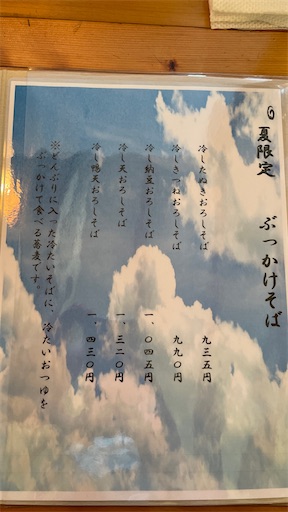 夏限定 ぶっかけそば
冷したぬきおろしそば 九三五円
冷しきつねおろしそば 九九〇円
冷し納豆おろしそば 一、〇四五円
冷し天おろしそば 一、三二〇円
冷し鴨天おろしそば 一、四三〇円
※どんぶりに入った冷たいそばに、冷たいおつゆを
ぶっかけて食べる蕎麦です。